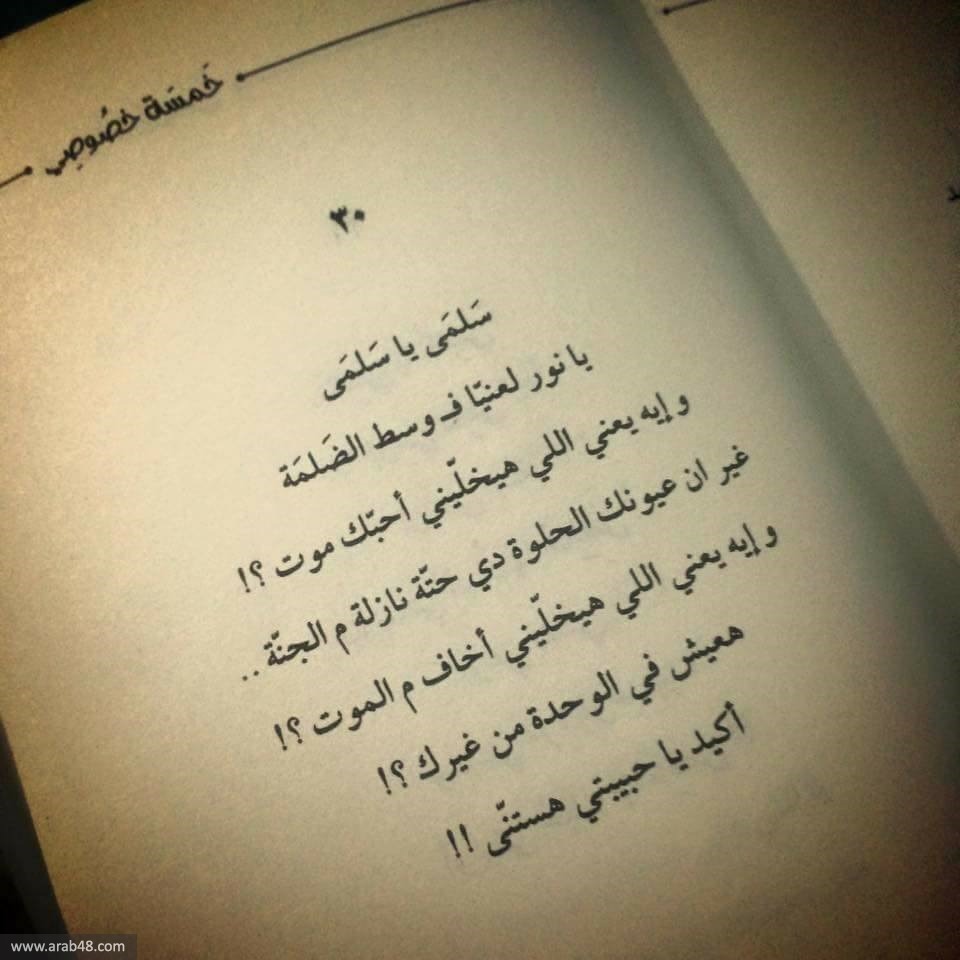 خَمسَة خصُوصِي
٣٠
سَلمَى يا سَلمَى
يا نور لعنيّا فـ وسط الضَلمَة
وإيه يعني اللي هيخلّيني أحبّك موت ؟!
غير ان عيونك الحلوة دي حتّة نازلة م الجنّة ..
وإيه يعني اللي هيخلّيني أخاف م الموت ؟!
هعيش في الوحدة من غيرك ؟!
أكيد يا حبيبتي هستنّى !!
www.arab48.com